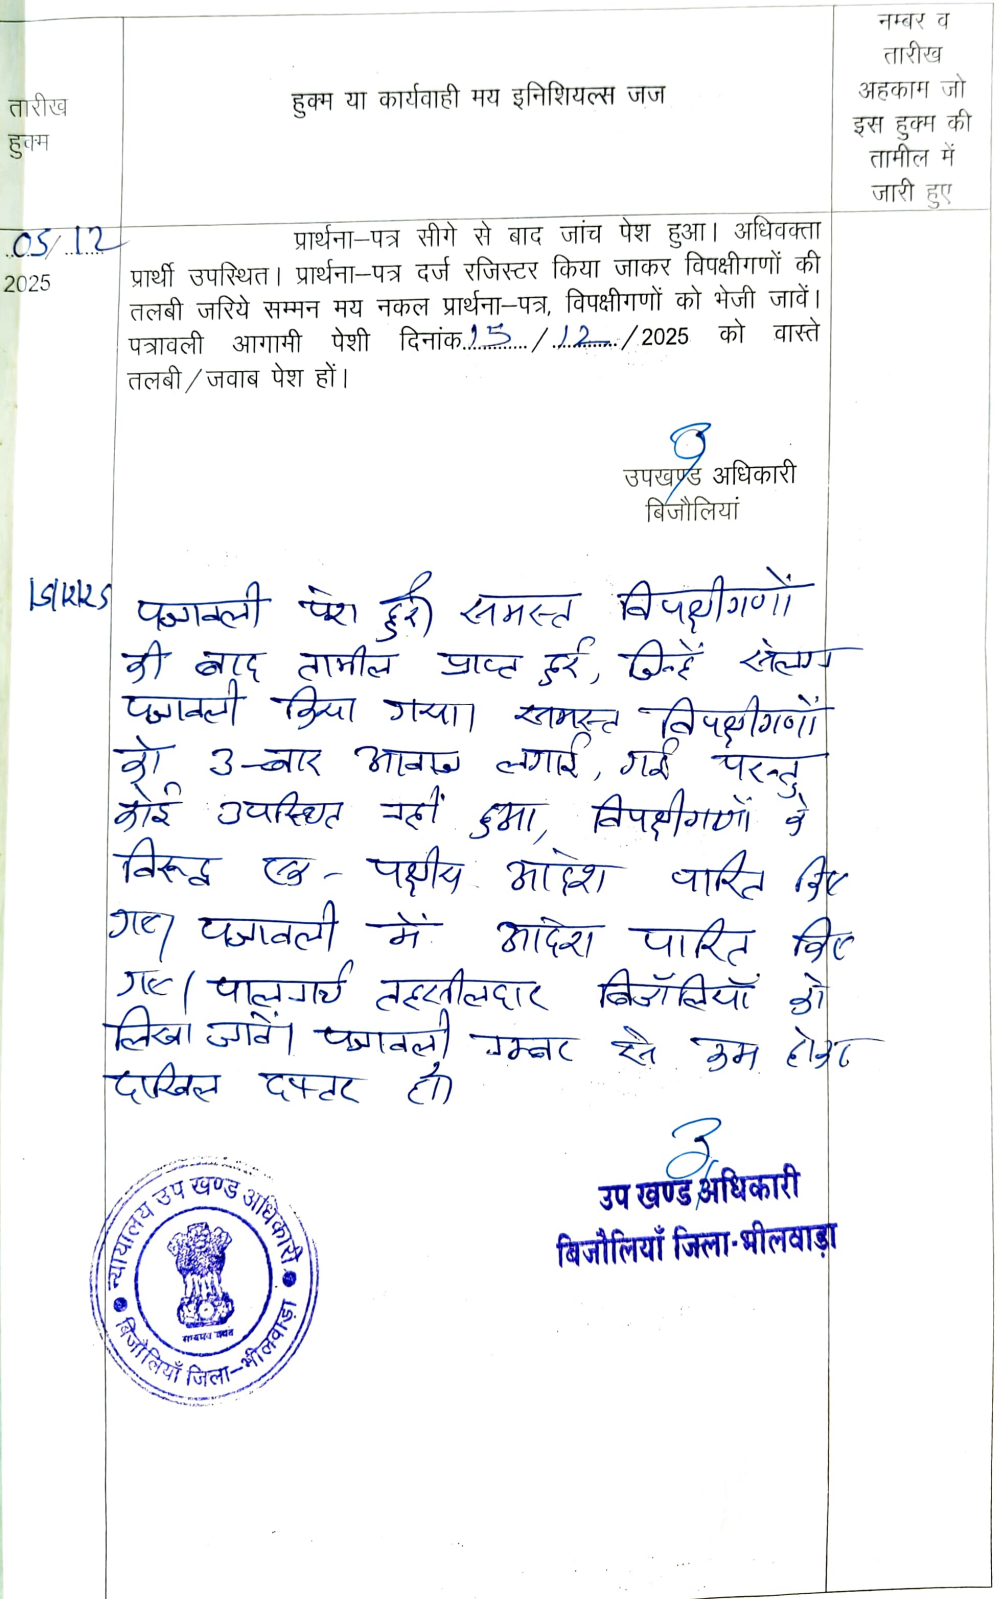 तारीख
हुक्म
हुक्म या कार्यवाही मय इनिशियल्स जज
नम्बर व
तारीख
अहकाम जो
इस हुक्म की
तामील में
जारी हुए
05/12
2025
प्रार्थना–पत्र सीगे से बाद जांच पेश हुआ। अधिवक्ता
प्रार्थी उपस्थित। प्रार्थना–पत्र दर्ज रजिस्टर किया जाकर विपक्षीगणों की
तलबी जरिये सम्मन मय नकल प्रार्थना–पत्र, विपक्षीगणों को भेजी जावें।
पत्रावली आगामी पेशी दिनांक 15/12/2025 को वास्ते
तलबी/जवाब पेश हों।
उपखण्ड अधिकारी
बिजौलियां
15/12/25
पत्रावली पेश हुई। समस्त विपक्षीगणों
की बाद तामील प्राप्त हुई, जिन्हें संलग्न
पत्रावली किया गया। समस्त विपक्षीगणों
को 3-बार आवाज लगाई, गई परन्तु
कोई उपस्थित नहीं हुआ, विपक्षीगणों के
विरूद्ध एक-पक्षीय आदेश पारित किए
गए। पत्रावली में आदेश पारित किए
गए। पालनार्थ तहसीलदार बिजौलियाँ को
लिखा जावें। पत्रावली नम्बर से कम होकर
दाखिल दफ्तर हो।
उप खण्ड अधिकारी
बिजौलियाँ जिला-भीलवाड़ा
न्यायालय उप खण्ड अधिकारी
सत्यमेव जयते
बिजौलियाँ जिला–भीलवाड़ा